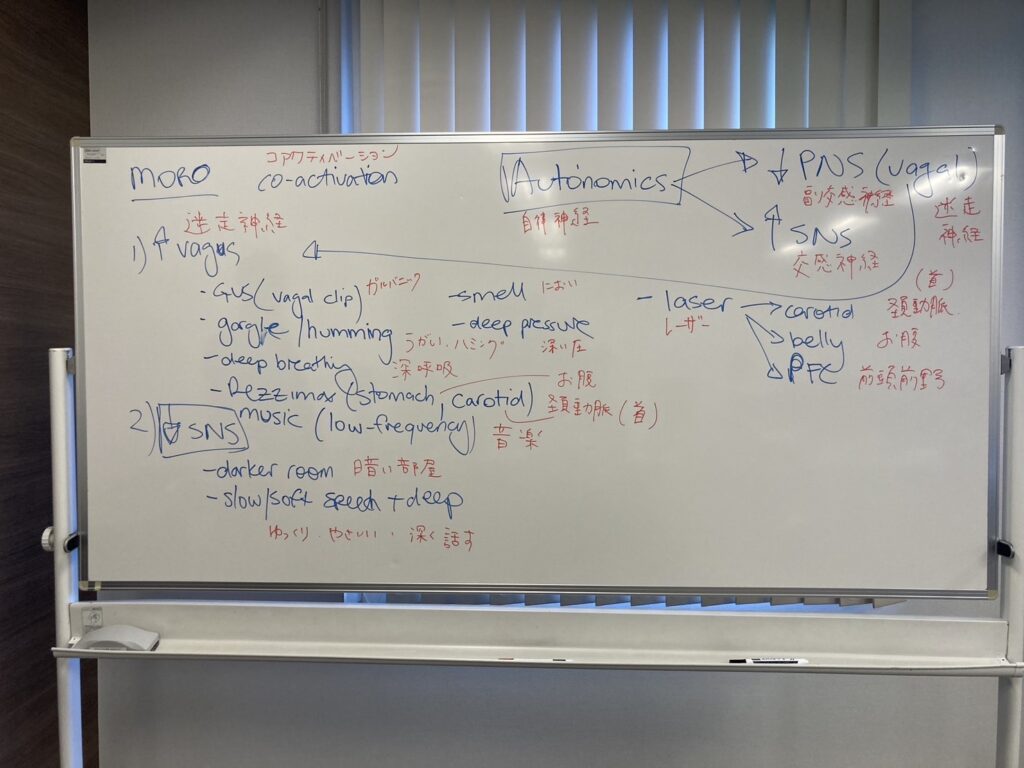 コアクティベーション
MORO co-activation
迷走神経
1) ↑ vagus
- GVS (vagal clip) ガルバニック
- gargle / humming
うがい・ハミング
- deep breathing 深呼吸
- Rezzimax (stomach, carotid) お腹 頚動脈 (首)
- smell におい
- deep pressure
深い圧
2) ↓ SNS
music (low-frequency) 音楽
- darker room 暗い部屋
- slow/soft speech + deep
ゆっくり・やさしい・深く話す
Autonomics
自律神経
↓ PNS (vagal)
副交感神経 迷走神経
↑ SNS
交感神経
- laser
レーザー
carotid 頚動脈 (首)
belly お腹
PFC 前頭前野